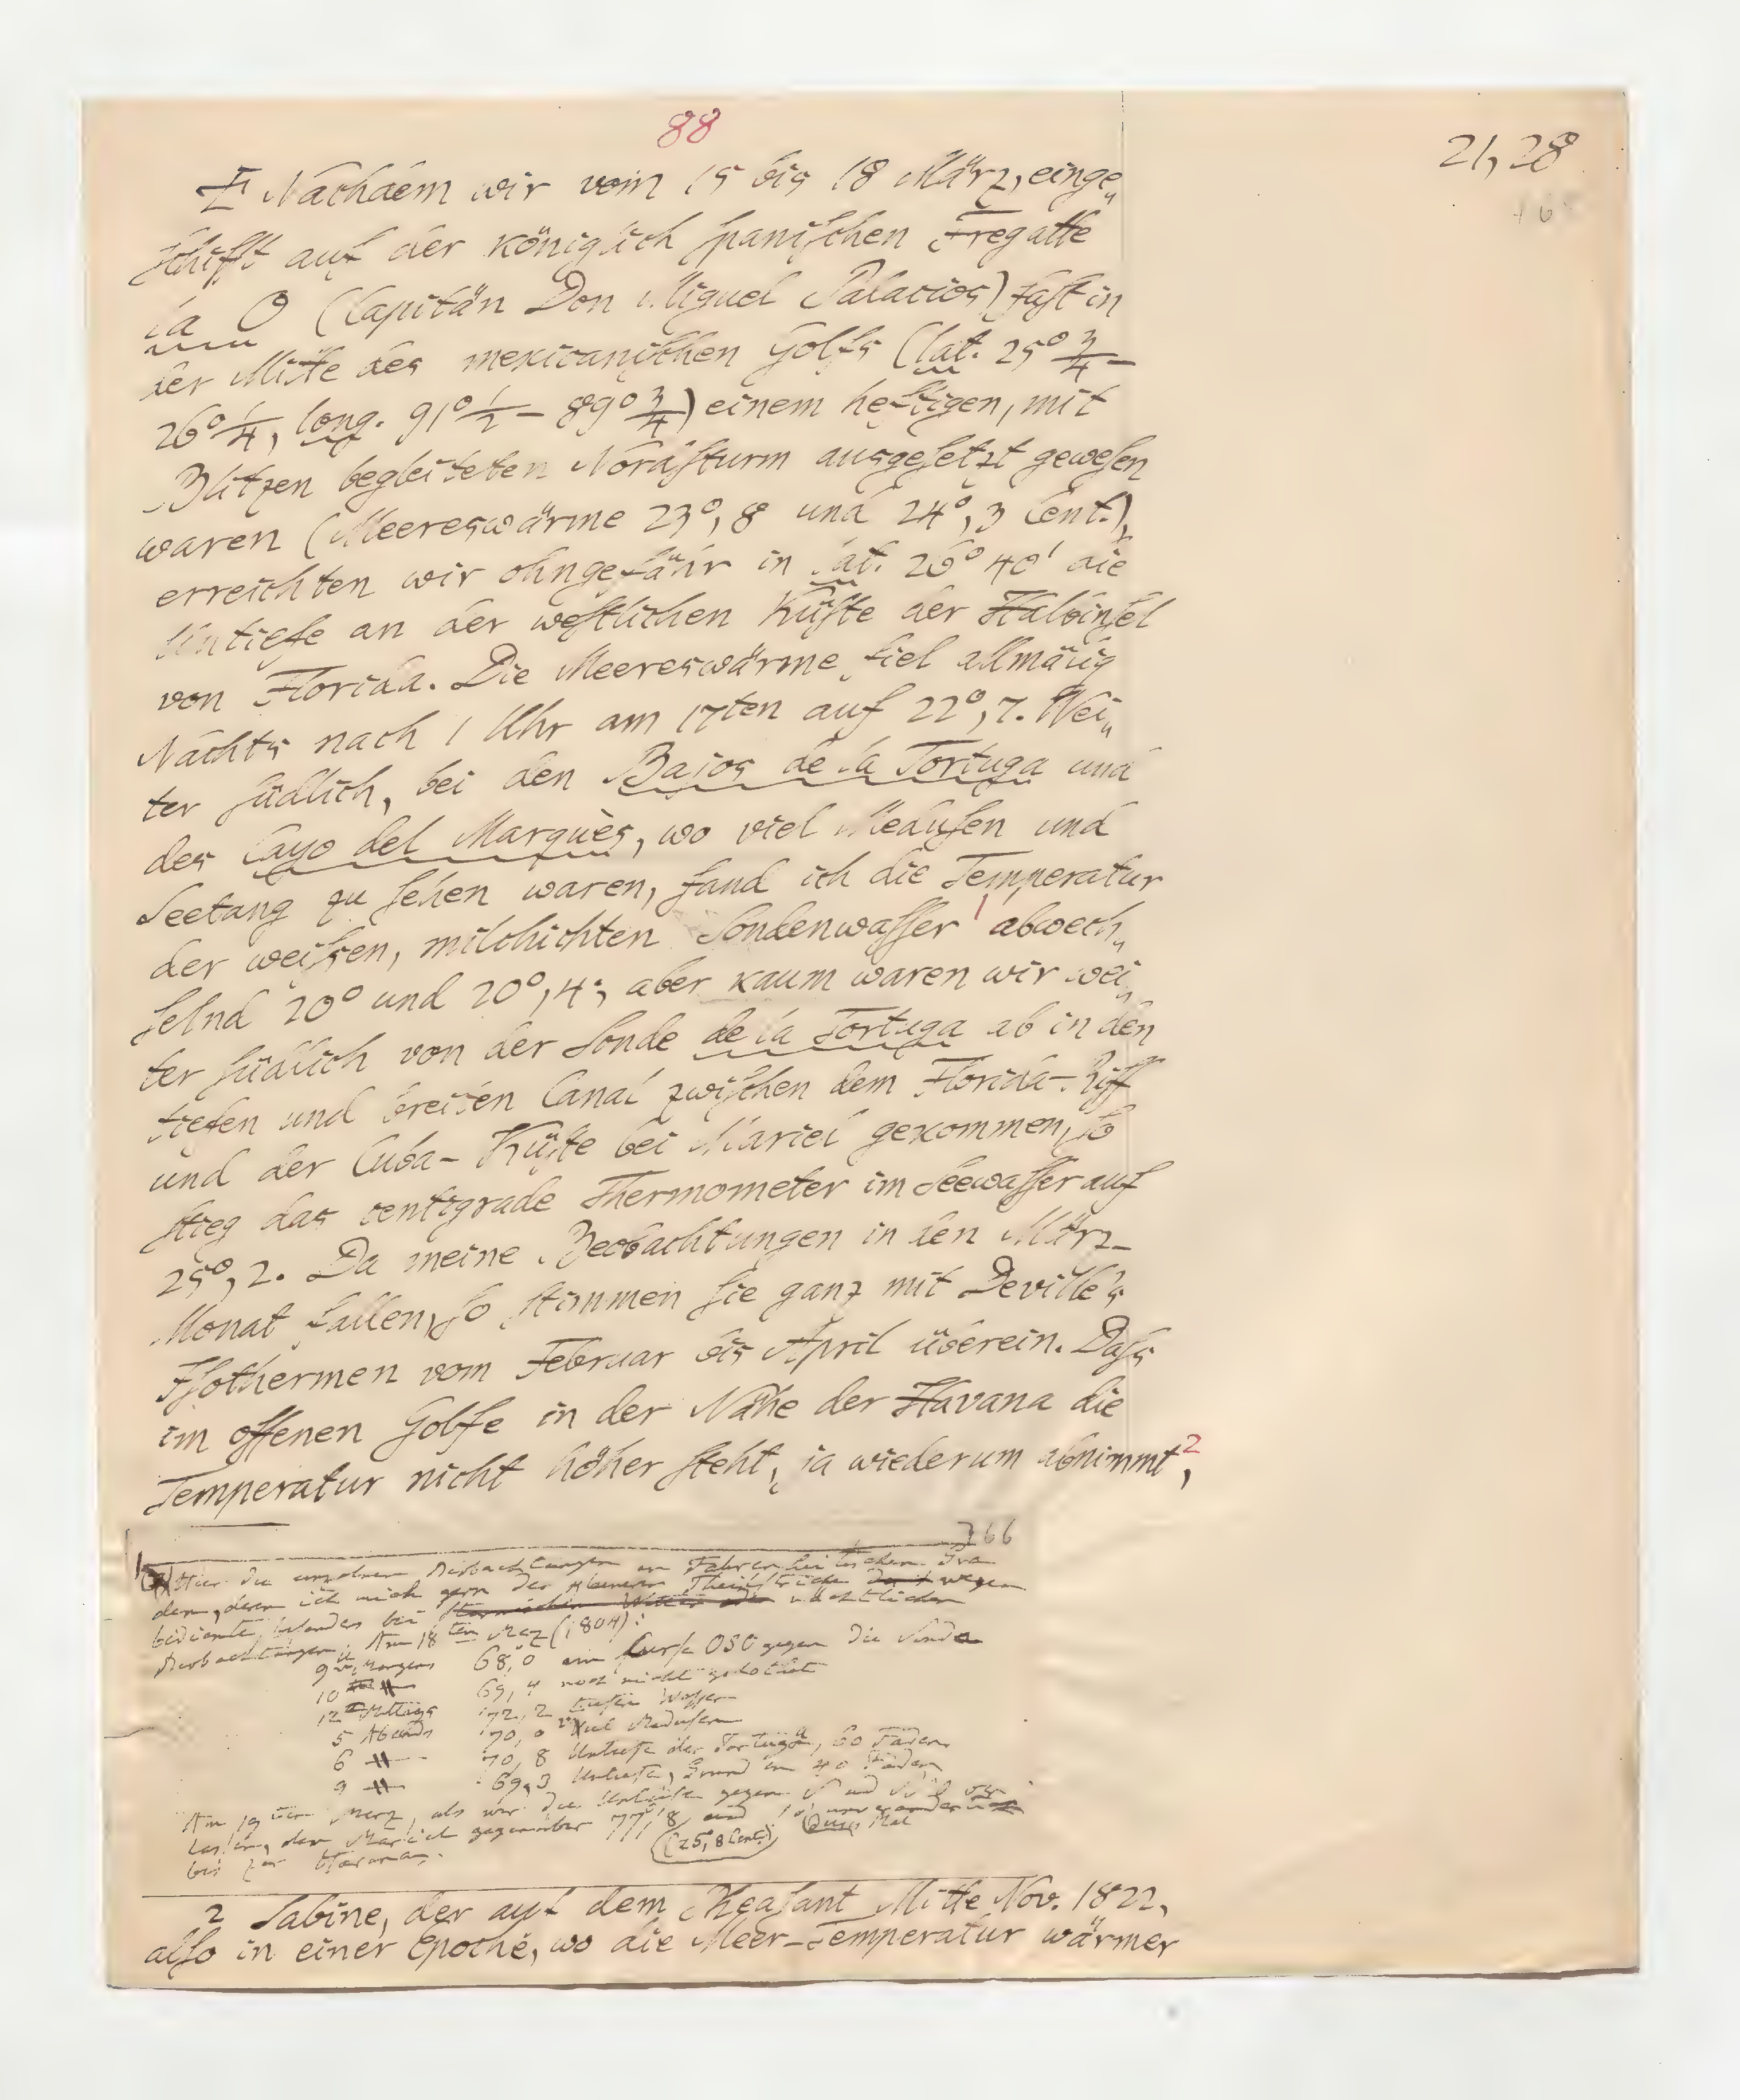 88
21, 28
Nachdem wir vom 15 bis 18 März, einge„
schifft auf der königlich spanischen Fregatte
la O (Capitän Don Miguel Palacios) fast in
der Mitte des mexicanischen Golfs (lat. 25° 3/4 –
26° 1/4, long. 91° 1/2 – 89° 3/4) einem heftigen, mit
Blitzen begleiteten Nordsturm ausgesetzt gewesen
waren (Meereswärme 23°, 8 und 24°, 3 Cent.),
erreichten wir ohngefähr in lat. 26° 40' die
Untiefe an der westlichen Küste der Halbinsel
von Florida. Die Meereswärme fiel allmälig
Nachts nach 1 Uhr am 17ten auf 22°, 7. Wei„
ter südlich, bei den Bajos de la Tortuga und
des Cayo del Marquès, wo viel Medusen und
Seetang zu sehen waren, fand ich die Temperatur
der weißen, milchichten Sondenwasser 1 abwech„
selnd 20° und 20°, 4; aber kaum waren wir wei„
ter südlich von der Sonde de la Tortuga ab in den
tiefen und breiten Canal zwischen dem Florida-Riff
und der Cuba-Küste bei Mariel gekommen, so
stieg das centigrade Thermometer im Seewasser auf
25°, 2. Da meine Beobachtungen in den März-
Monat fallen, so stimmen sie ganz mit Deville's
Isothermen vom Februar bis April überein. Daß
im offenen Golfe in der Nähe der Havana die
Temperatur nicht höher steht, ja wiederum abnimmt 2,
166
Hier die einzelnen Beobachtungen in Fahrenheitischen Gra
den, deren ich mich gern der kleineren Theilstriche wegen
bediente, besonders bei nächtlichen
Beobachtungen. Am 18ten Merz (1804):
9 u. Morgens 68,0 im Curse OSO gegen die Sonde
10 69,4 noch nicht gelothet
12 Mittags 72,2 tiefes Wasser
5 Abends 70,0 viel Medusen
6 70,8 Untiefe der Tortuga, 60 Faden
9 69,3 Untiefe, Grund in 40 Faden
Am 19ten Merz, als wir die Untiefe gegen S und
lassen, dem Mariel gegenüber 77,8 und
bis zur Havana. (25°, 8 Cent.)
2 Sabine, der auf dem Pheasant Mitte Nov. 1822,
also in einer Epoche, wo die Meer-Temperatur wärmer